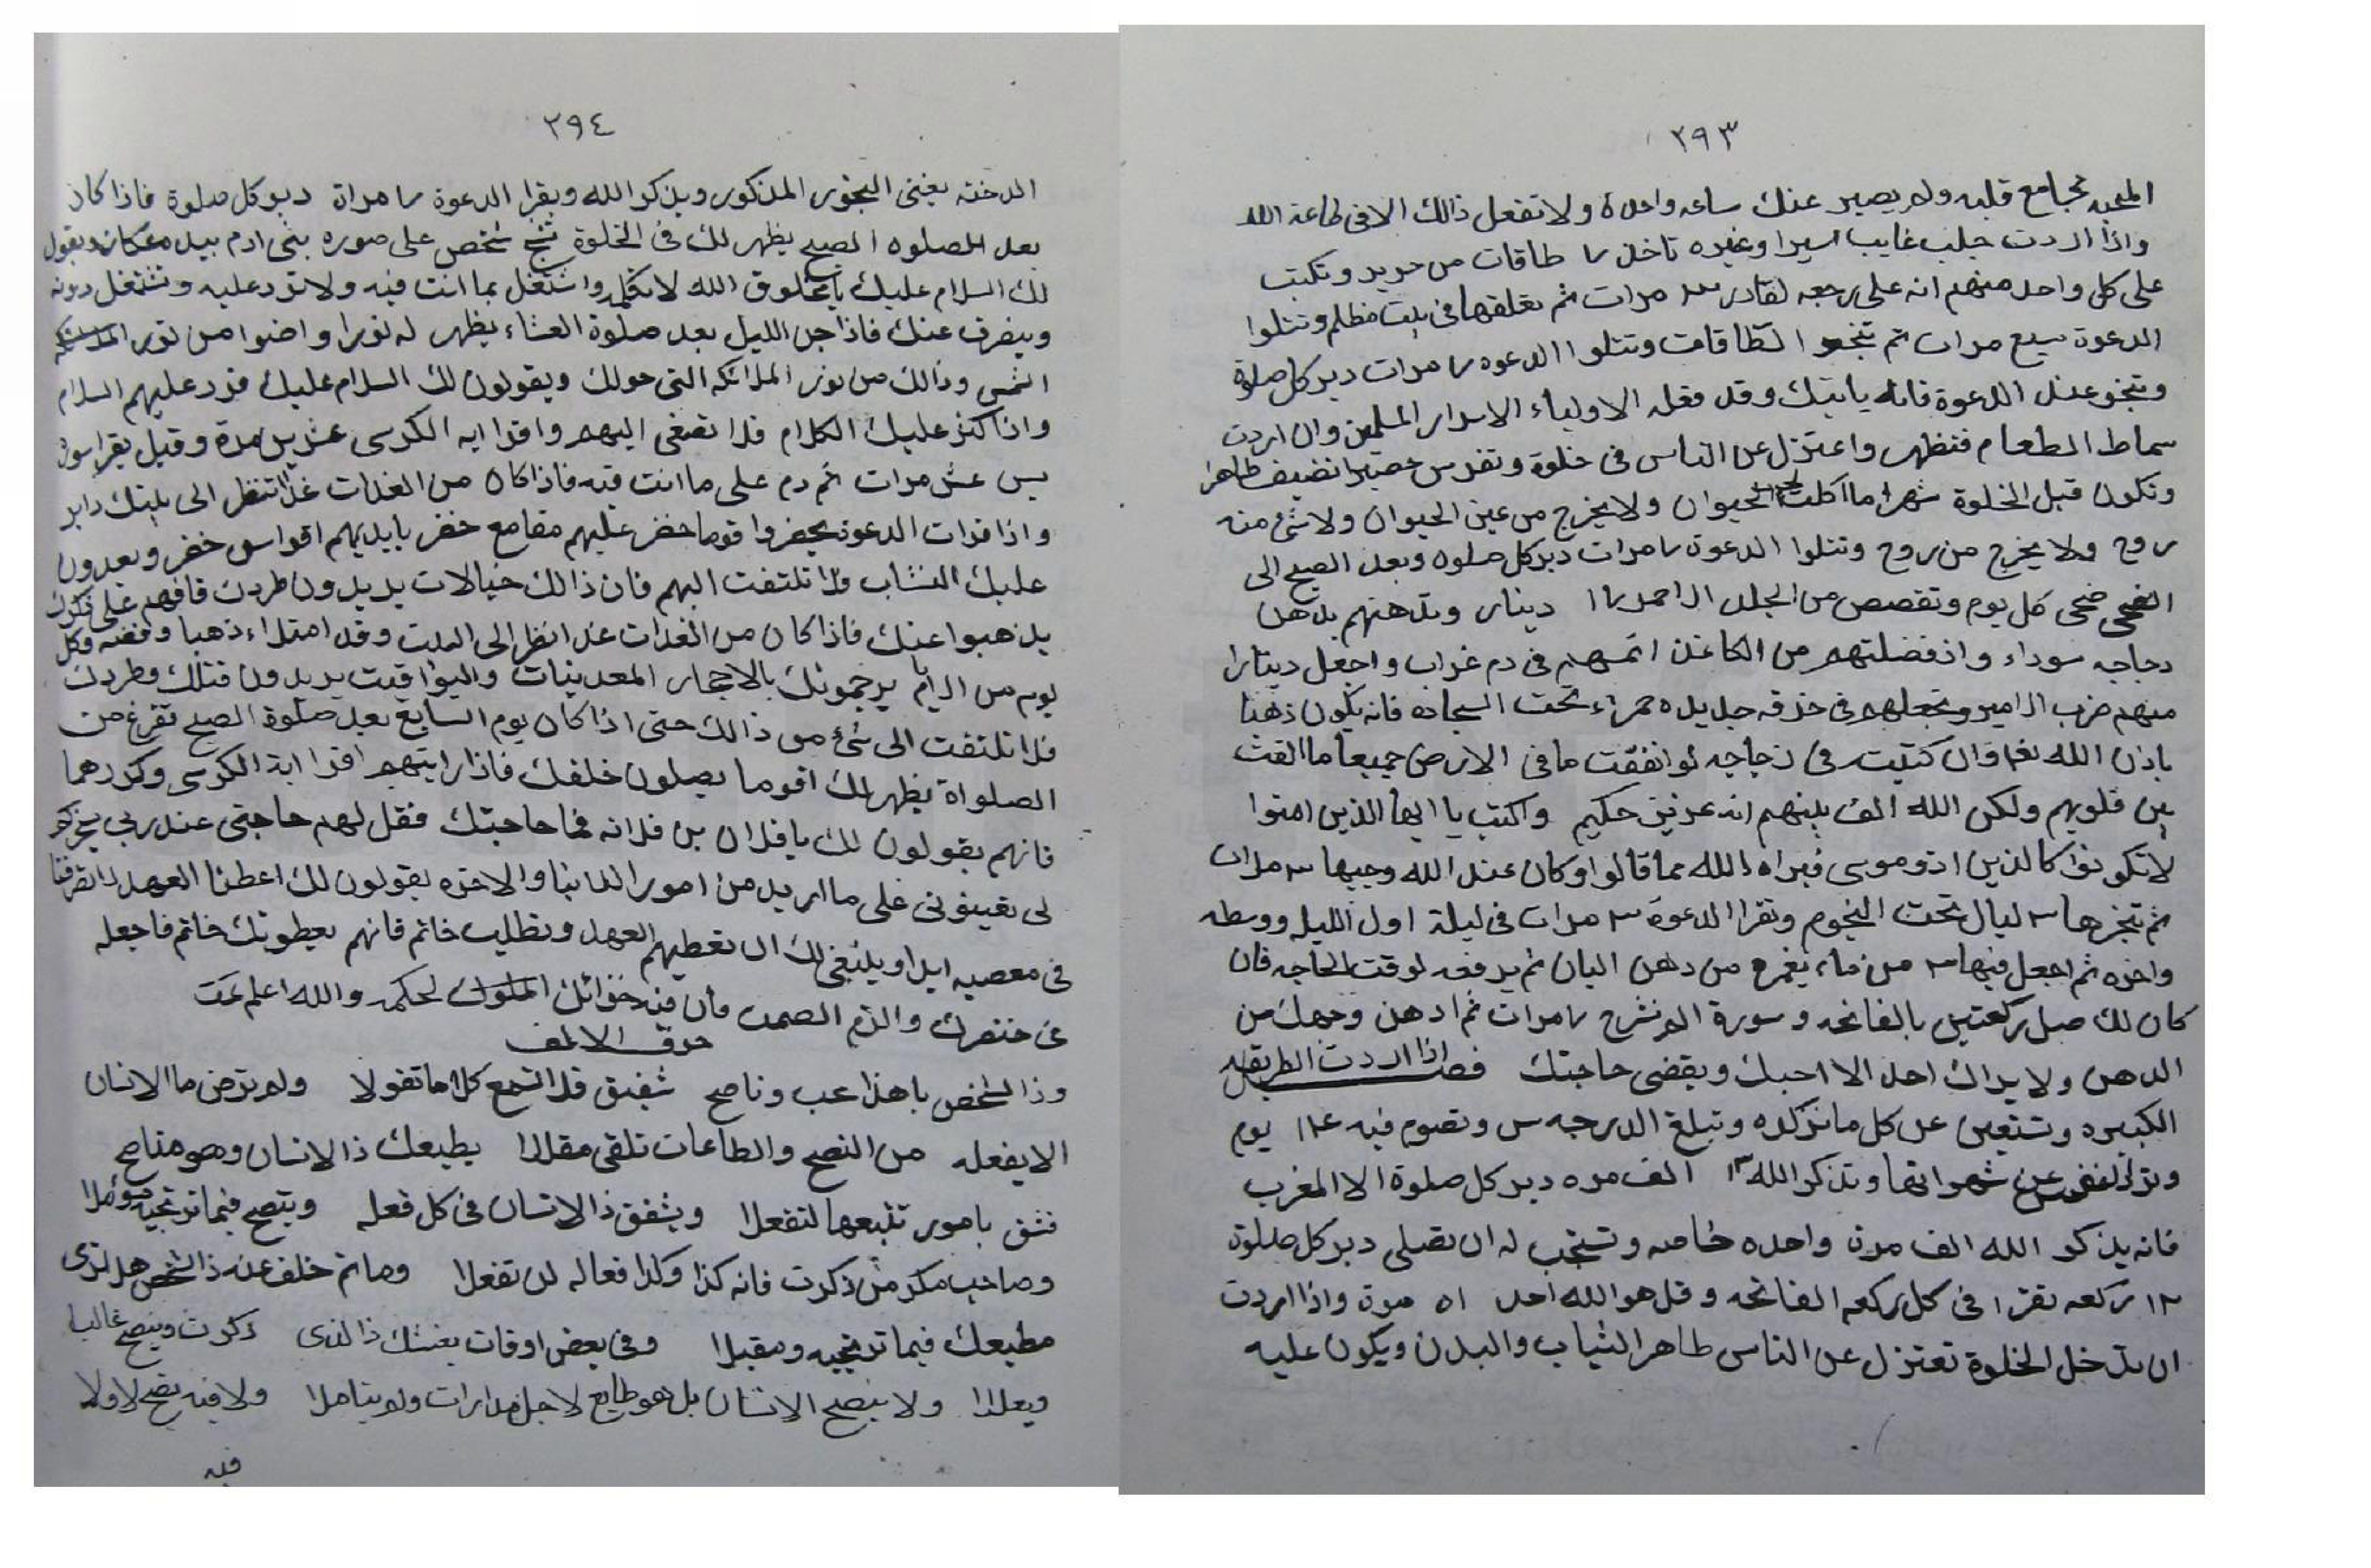 ٢٩٣
المحبه بمجامع قلبه ولم يصير عنك ساعه واحدة ولا تفعل ذالك الا فى طاعة الله
واذا اردت جلب غايب اسيرا وغيره تاخذ ٧ طاقات من حريد وتكتب
على كل واحد منهم انه على رجعه لقادر مرات ثم تعلقها فى بيت مظلم وتتلوا
الدعوة سبع مرات ثم تبخر الطاقات وتتلوا الدعوه ٧ مرات دبر كل صلوة
وتبخر عند الدعوة فانه ياتيك وقد فعله الاولياء الاسرار المسلمين وان اردت
سماط الطعام فتطهر واعتزل عن الناس فى خلوة وتفرس حصيرا نضيف طاهرا
وتكون قبل الخلوة شهرا ما اكلت لحم الحيوان ولا يخرج من عين الحيوان ولا شئ منه
روح ولا يخرج من روح وتتلوا الدعوة ٧ مرات دبر كل صلوه وبعد الصبح الى
الضحى ضحى كل يوم وتقصص من الجلد الاحمر ١٧ دينار وتدهنهم بدهن
دجاجه سوداء واذ فضلتهم من الكاغذ اغمسهم فى دم غراب واجعل دينارا
منهم ضرب الامير وتجعلهم فى خرقه جديده حمراء تحت السجاده فانه يكون ذهبا
باذن الله تعا وان كتبت فى زجاجه لو انفقت ما فى الارض جميعا ما الفت
بين قلوبهم ولكن الله الف بينهم انه عزيز حكيم واكتب يا ايها الذين امنوا
لا تكونوا كالذين اذو موسى فبراه الله مما قالوا وكان عند الله وجيها ٣ مرات
ثم تبخرها ٣ ليال تحت النجوم وتقرا الدعوة ٣ مرات فى ليلة اول الليل ووسطه
واخره ثم اجعل فيها من ماء يفرغ من دهن البان ثم يدفعه لوقت الحاجه فان
كان لك صل ركعتين بالفاتحه وسورة الم نشرح ٧ مرات ثم ادهن وجهك من
الدهن ولا يراك احد الا احبك ويقضى حاجتك فصل اذا اردت الطريقه
الكبيره وتستعين عن كل ما نزكده وتبلغ الدرجه س وتصوم فيه ١٢٤ يوم
وترك لنفس عن شهواتها وتذكر الله ١٣ الف مره دبر كل صلوة الا المغرب
فانه يذكر الله الف مرة واحده خاصه وتستحب له ان تصلى دبر كل صلوة
١٢ ركعه تقرا فى كل ركعه الفاتحه وقل هو الله احد ٥١ مرة واذا اردت
ان تدخل الخلوة تعتزل عن الناس طاهر الثياب والبدن ويكون عليه
٢٩٤
الدخنه يعنى البخور المذكور ويذكر الله ويقرا الدعوة ٧ مرات دبر كل صلوة فاذا كان
بعد الصلوه الصبح يظهر لك فى الخلوة شخص على صوره بنى ادم بيده عكاز ويقول
لك السلام عليك يا مخلوق الله لا تكلمه واشتغل بما انت فيه ولا ترد عليه وتشتغل دونه
وينصرف عنك فاذا جن الليل بعد صلوة العشاء يظهر له نورا واضوا من نور
الشمس وذالك من نور الملائكه التى حولك ويقولون لك السلام عليك فرد عليهم السلام
واذا كثر عليك الكلام فلا تصغى اليهم واقرا ايه الكرسى عشرين مرة وقيل يقرا سورة
يس عشر مرات ثم دم على ما انت فيه فاذا كان من الغدات غدا تنظر الى بيتك داير
واذا قرات الدعوة يحضروا قوما خضر عليهم مقامع خضر بايديهم اقواس خضر ويعدون
عليك النشاب ولا تلتفت اليهم فان ذالك خيالات يريدون طردك فافهم على ذكرك
يذهبوا عنك فاذا كان من الغدات غدا انظر الى البيت وقد امتلاء ذهبا وفضه وكل
يوم من الايام يرجمونك بالاحجار المعدنيات واليواقيت يريدون قتلك وطردك
فلا تلتفت الى شئ من ذالك حتى اذا كان يوم السابع بعد صلوة الصبح تفرغ من
الصلواة يظهر لك اقوما يصلون خلفك فاذا رايتهم اقرا اية الكرسى وكررهما
فانهم يقولون لك يا فلان بن فلانه فما حاجتك فقل لهم حاجتى عند ربى
لى تعينونى على ما اريد من امور الدانيا والاخره يقولون لك اعطنا العهد لا تصرفنا
فى معصيه ابدا وينبغى لك ان تعطيهم العهد وتطلب خاتم فانهم يعطونك خاتم فاجعله
فى خنصرك والزم الصمت فان فيه خزائن الملوك لحكمه والله اعلم تمت
حرف الالف
وذا الشخص يا هذا عب وناصح شفيق فلا تسمع كلاما تقولا ولم ترض ما الانسان
الا يفعله من النصح والطاعات تلقى مقالا يطيعك ذا الانسان وهو مناصح
فثق بامور تتبعها لتفعلا ويشفق ذا الانسان فى كل فعله وينصح فيما ترتجيه مؤملا
وصاحب مكر من ذكرت فانه كذا وكذا فعاله لن تفعلا وما ثم خلف عند ذا الشخص هل ترى
مطيعك فيما ترتجيه ومقبلا وفى بعض اوقات يغشك ذا الذى ذكرت وينصح غالبا
ويعلا ولا ينصح الانسان بل هو طايع لاجل مدارات ولم يتاملا ولا فيه نصح لا ولا
فيه